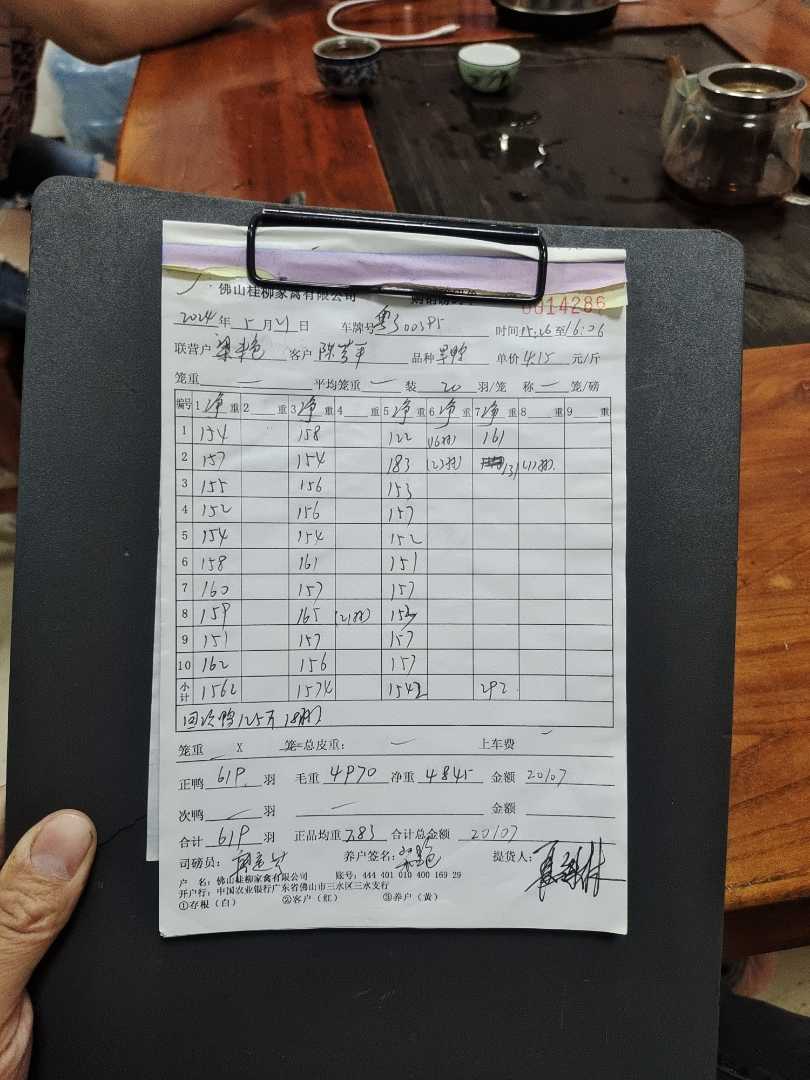 佛山桂柳家禽有限公司 0014286
2024 年 5 月 21 日 车牌号 粤 时间 15:26 至 16:06
联营户 客户 品种 旱鸭 单价 4.15 元/斤
笼重 — 平均笼重 — 装 20 羽/笼 称 — 笼/磅
编号 1 净 重 2 重 3 净 重 4 重 5 净 重 6 净 重 7 净 重 8 重 9 重
1 154 158 122 (16羽) 161
2 157 154 183 (23羽) 131 (17羽)
3 155 156 153
4 152 156 157
5 154 154 152
6 158 161 151
7 160 157 157
8 159 165 (21羽) 153
9 151 157 157
10 162 156 157
小计 1562 1574 1542 292
回次鸭125斤 18羽
笼重 X 笼=总皮重: — 上车费 —
正鸭 619 羽 毛重 4970 净重 4845 金额 20107
次鸭 羽 — 金额
合计 619 羽 正品均重 7.83 合计总金额 20107
司磅员: 养户签名: 提货人:
户 名: 佛山桂柳家禽有限公司 账号: 444 401 010 400 169 29
开户行: 中国农业银行广东省佛山市三水区三水支行
①存根(白) ②客户(红) ③养户(黄)